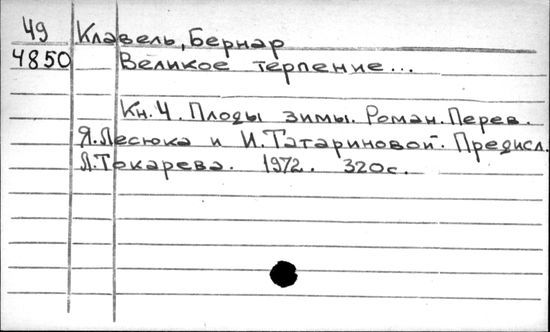 49 Клавель, Бернар
4850 Великое терпение...
Кн.4. Плоды зимы. Роман. Перев.
Я.Лесюка и И.Татариновой. Предисл.
Л.Токарева. 1972. 320с.